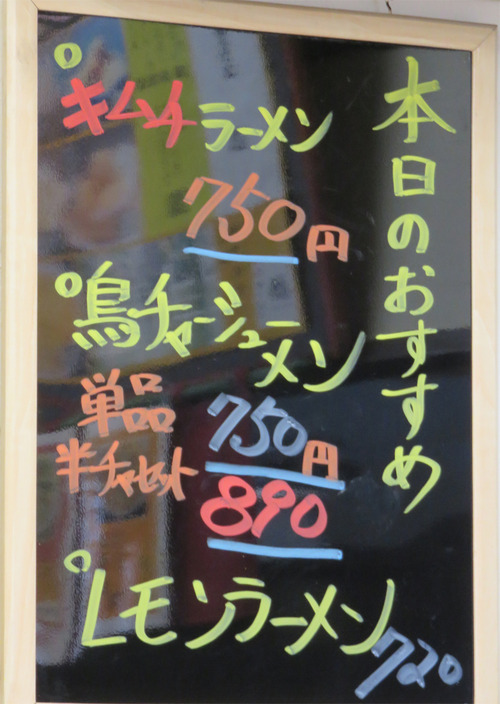 本日のおすすめ
キムチラーメン
750円
鳥チャーシュー
メン
単品 750円
半チャセット 890
レモンラーメン
720